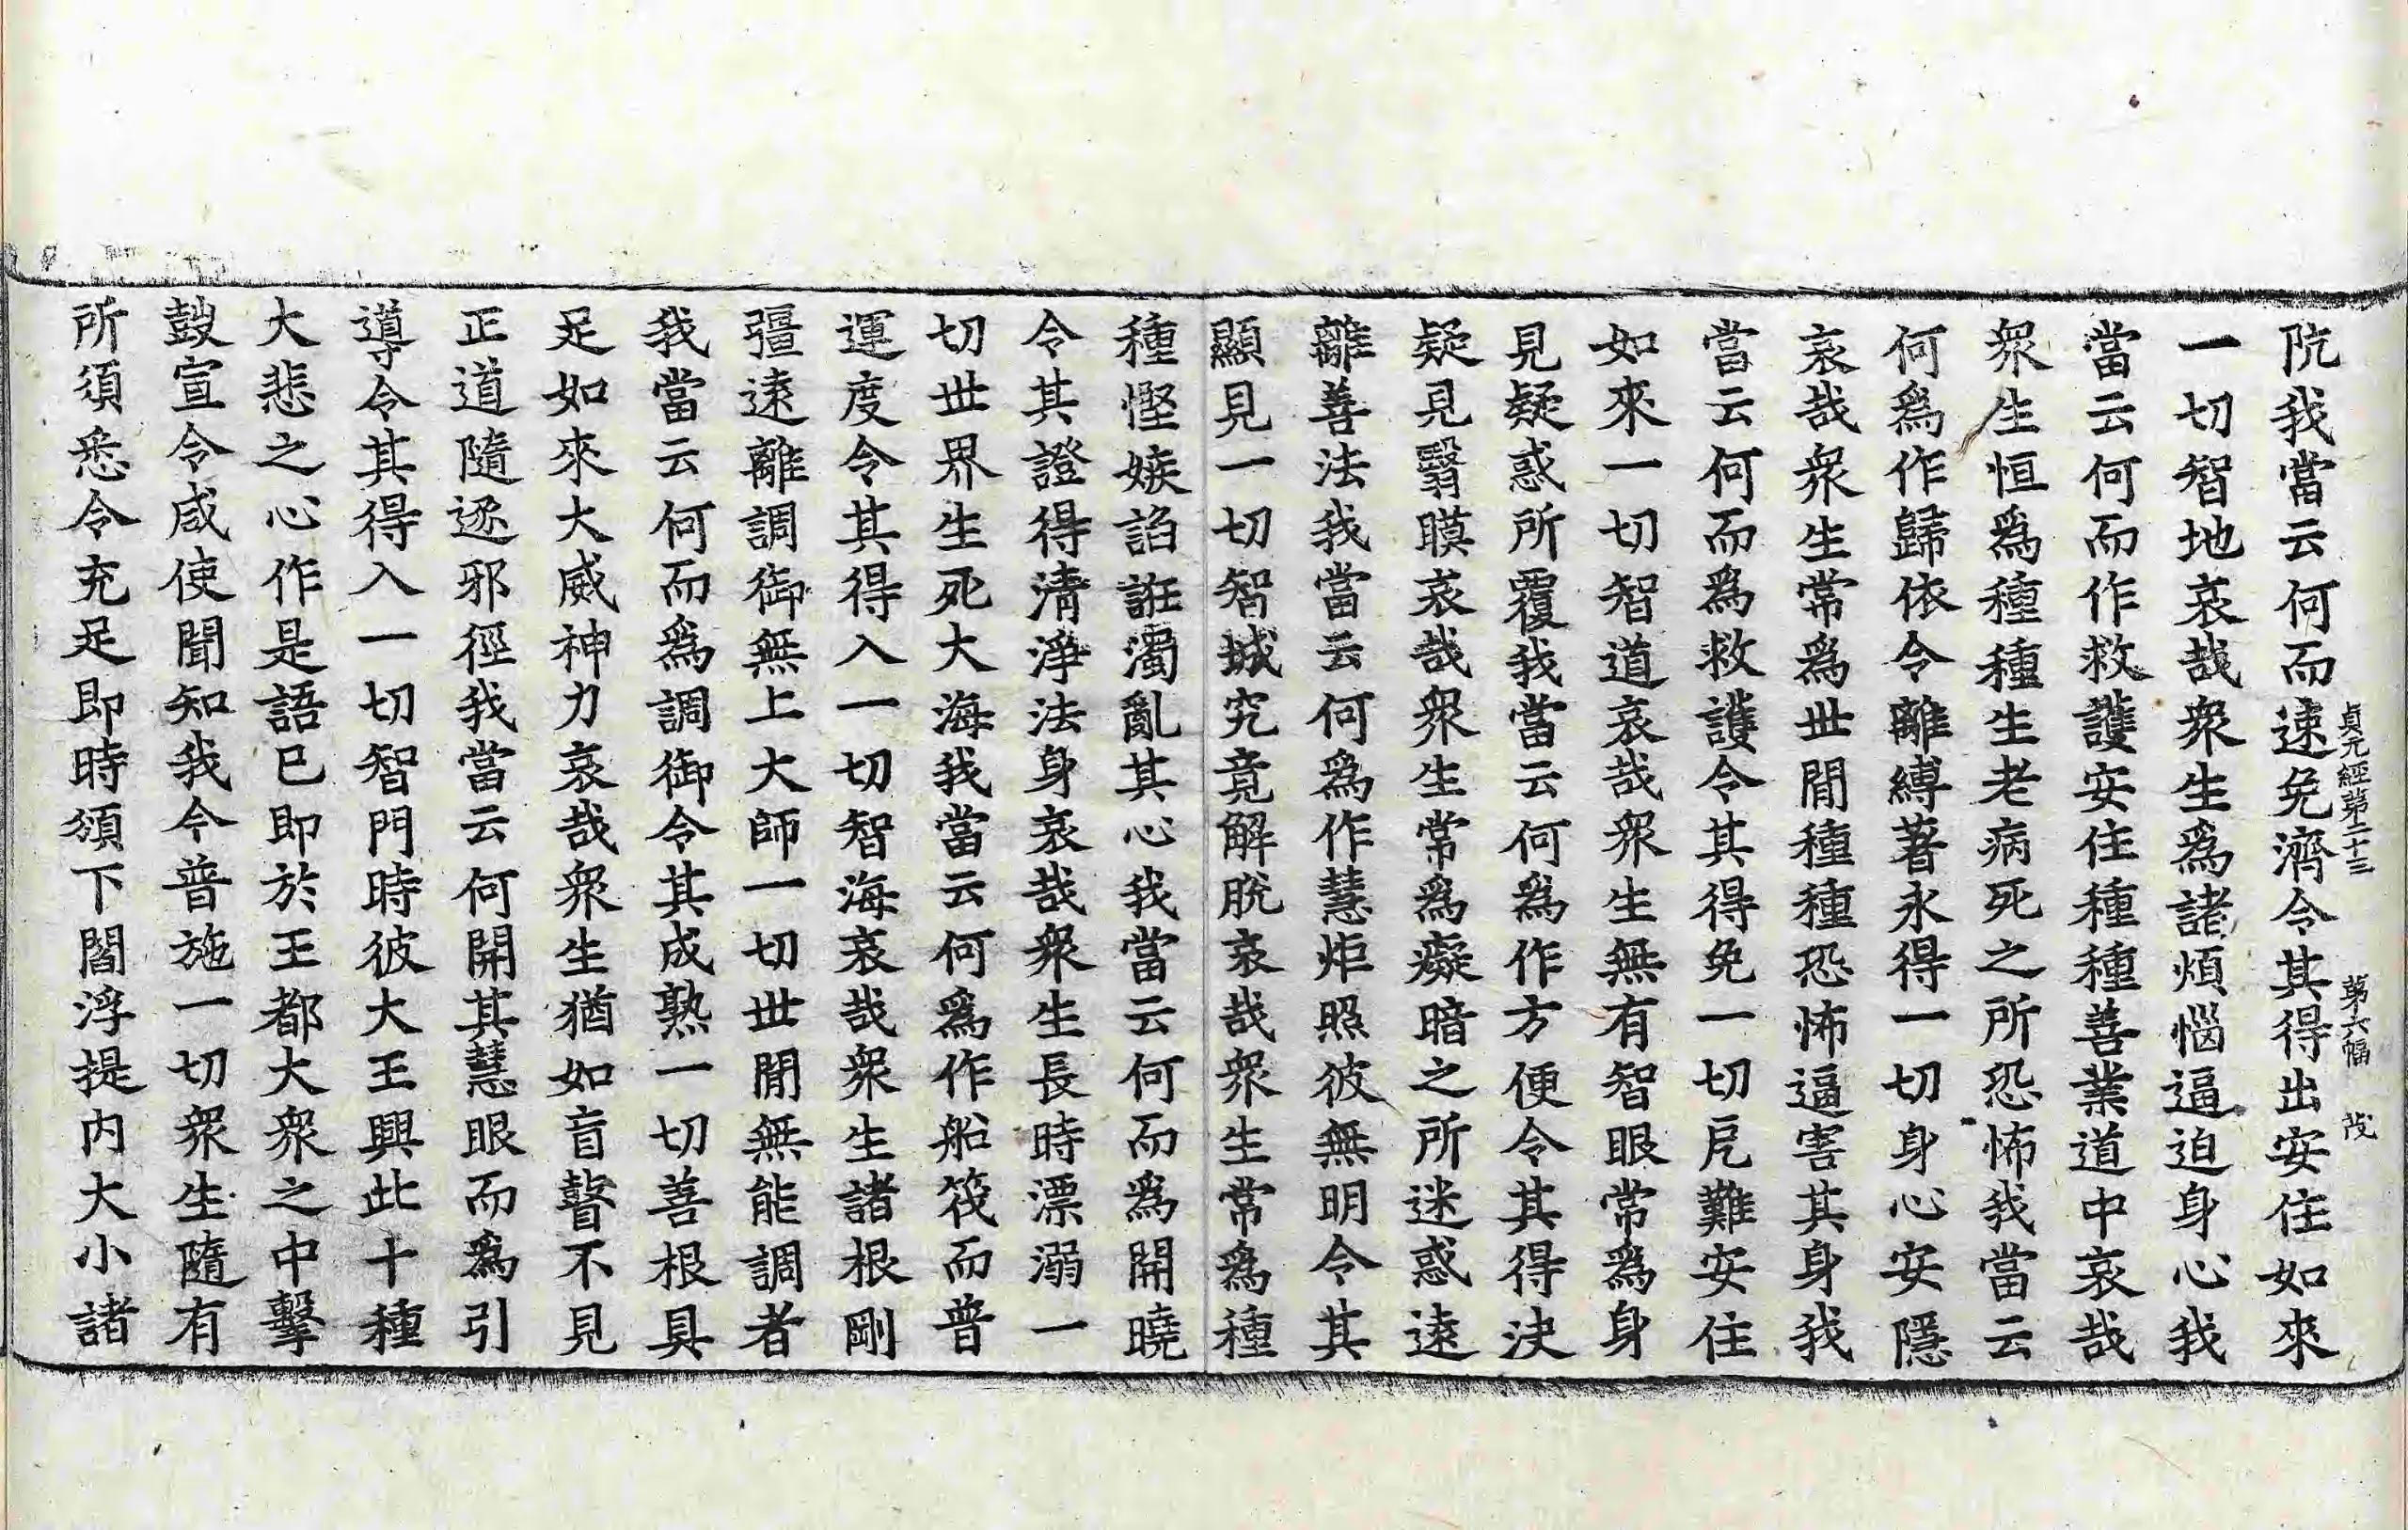 阬我當云何而速免濟令其得出安住如來
貞元經第二十三 第六幅 茂
一切智地哀哉衆生爲諸煩惱逼迫身心我
當云何而作救護安住種種善業道中哀哉
衆生恒爲種種生老病死之所恐怖我當云
何爲作歸依令離縛著永得一切身心安隱
哀哉衆生常爲世間種種恐怖逼害其身我
當云何而爲救護令其得免一切危難安住
如來一切智道哀哉衆生無有智眼常爲身
見疑惑所覆我當云何爲作方便令其得決
疑見翳瞙哀哉衆生常爲癡暗之所迷惑遠
離善法我當云何爲作慧炬照彼無明令其
顯見一切智城究竟解脫哀哉衆生常爲種
種慳嫉諂誑濁亂其心我當云何而爲開曉
令其證得清淨法身哀哉衆生長時漂溺一
切世界生死大海我當云何爲作船筏而普
運度令其得入一切智海哀哉衆生諸根剛
彊遠離調御無上大師一切世間無能調者
我當云何而爲調御令其成熟一切善根具
足如來大威神力哀哉衆生猶如盲瞽不見
正道隨逐邪徑我當云何開其慧眼而爲引
導令其得入一切智門時彼大王興此十種
大悲之心作是語已即於王都大衆之中擊
鼓宣令咸使聞知我今普施一切衆生隨有
所須悉令充足即時頒下閻浮提內大小諸